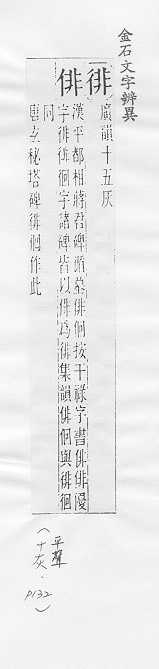 金石文字辨異
徘 廣韻十五灰
俳 漢平都相蔣君碑遊墓俳佪按干祿字書俳俳優
字徘徘徊字諸碑皆以俳為徘集韻俳佪與徘徊
同
唐玄秘塔碑徘徊作此
(平聲
十灰.
P132)